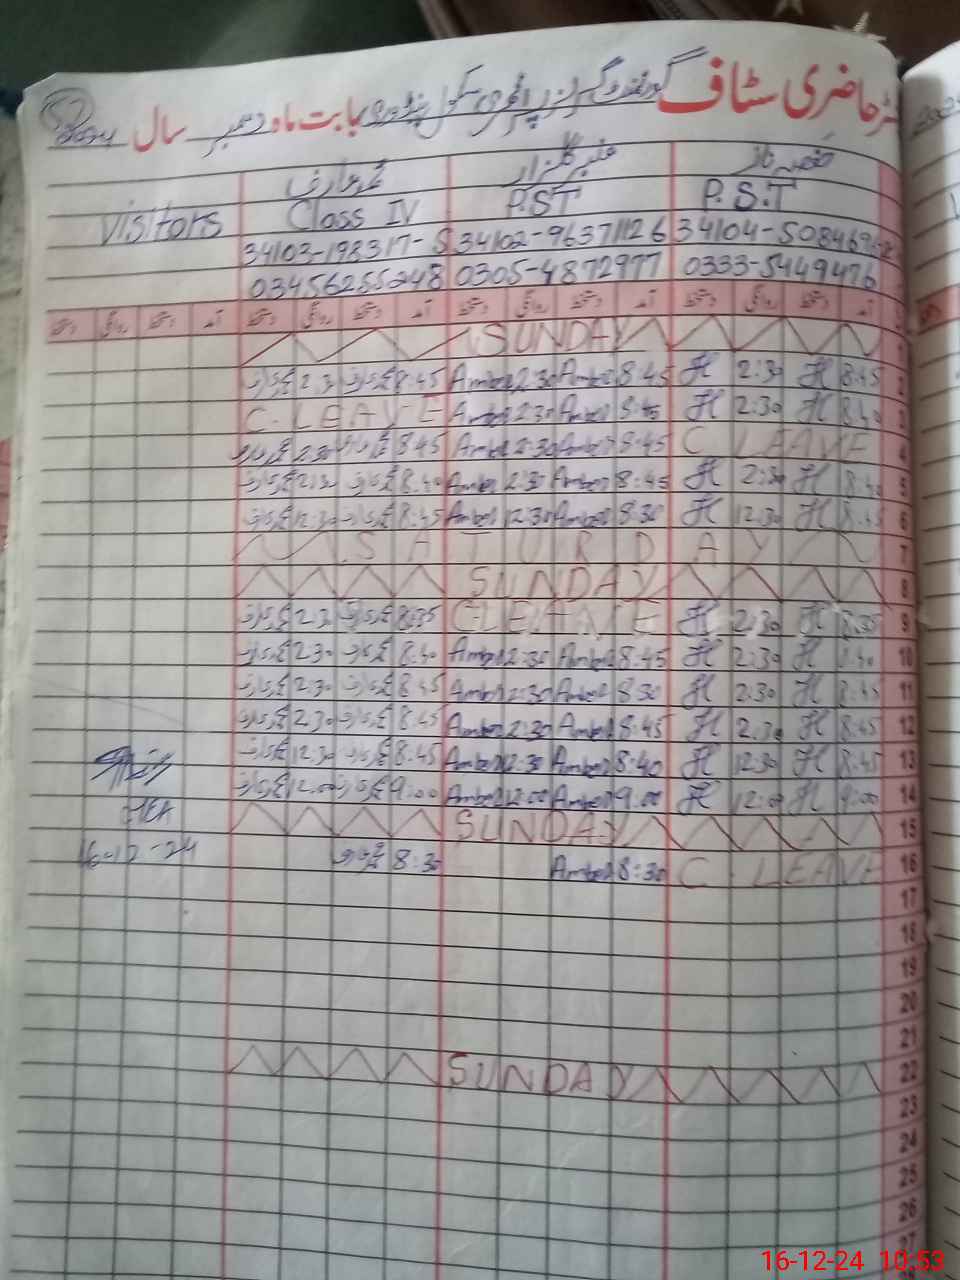 رجسٹر حاضری سٹاف گورنمنٹ گرلز پرائمری سکول بابت ماہ دسمبر سال 2024
عنبر گلزار
Visitors Class IV P.ST P.S.T
34103-198317-5 34102-96371126
03456255248 0305-4872977 0333-5449476
آمد دستخط روانگی دستخط آمد دستخط روانگی دستخط آمد دستخط روانگی دستخط آمد دستخط روانگی دستخط
SUNDAY 1
2:30 8:45 Amber 2:30 Amber 8:45 H 2:30 H 8:45 2
C. LEAVE Amber 2:30 Amber 8:45 H 2:30 H 8:40 3
2:30 8:45 Amber 2:30 Amber 8:45 C LEAVE 4
2:30 8:40 Amber 2:30 Amber 8:45 H 2:30 H 8:40 5
12:30 8:45 Amber 12:30 Amber 8:30 H 12:30 H 8:45 6
SATURDAY 7
SUNDAY 8
2:30 8:35 C-LEAVE H 2:30 H 8:35 9
2:30 8:40 Amber 2:30 Amber 8:45 H 2:30 H 8:40 10
2:30 8:45 Amber 2:30 Amber 8:30 H 2:30 H 8:45 11
2:30 8:45 Amber 2:30 Amber 8:45 H 2:30 H 8:45 12
12:30 8:45 Amber 12:30 Amber 8:40 H 12:30 H 8:45 13
12:00 9:00 Amber 12:00 Amber 9:00 H 12:00 H 9:00 14
MEA SUNDAY 15
16-12-24 8:30 Amber 8:30 C. LEAVE 16
17
18
19
20
21
SUNDAY 22
23
24
25
26
27
16-12-24 10:53